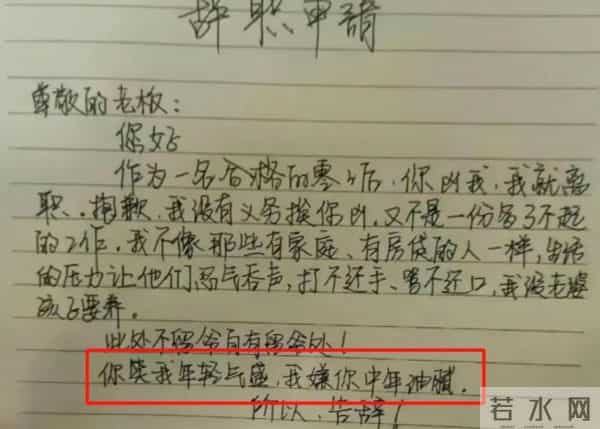 辞职申请
尊敬的老板：
你好
作为一名合格的零零后，你凶我，我就离
职。抱歉，我没有义务挨你凶，又不是一份多了不起
的工作。我不像那些有家庭、有房贷的人一样，生活
的压力让他们忍气吞声，打不还手、骂不还口，我没老婆
孩子要养。
此处不留爷自有留爷处！
你笑我年轻气盛，我嫌你中年油腻。
所以，告辞！
若水网